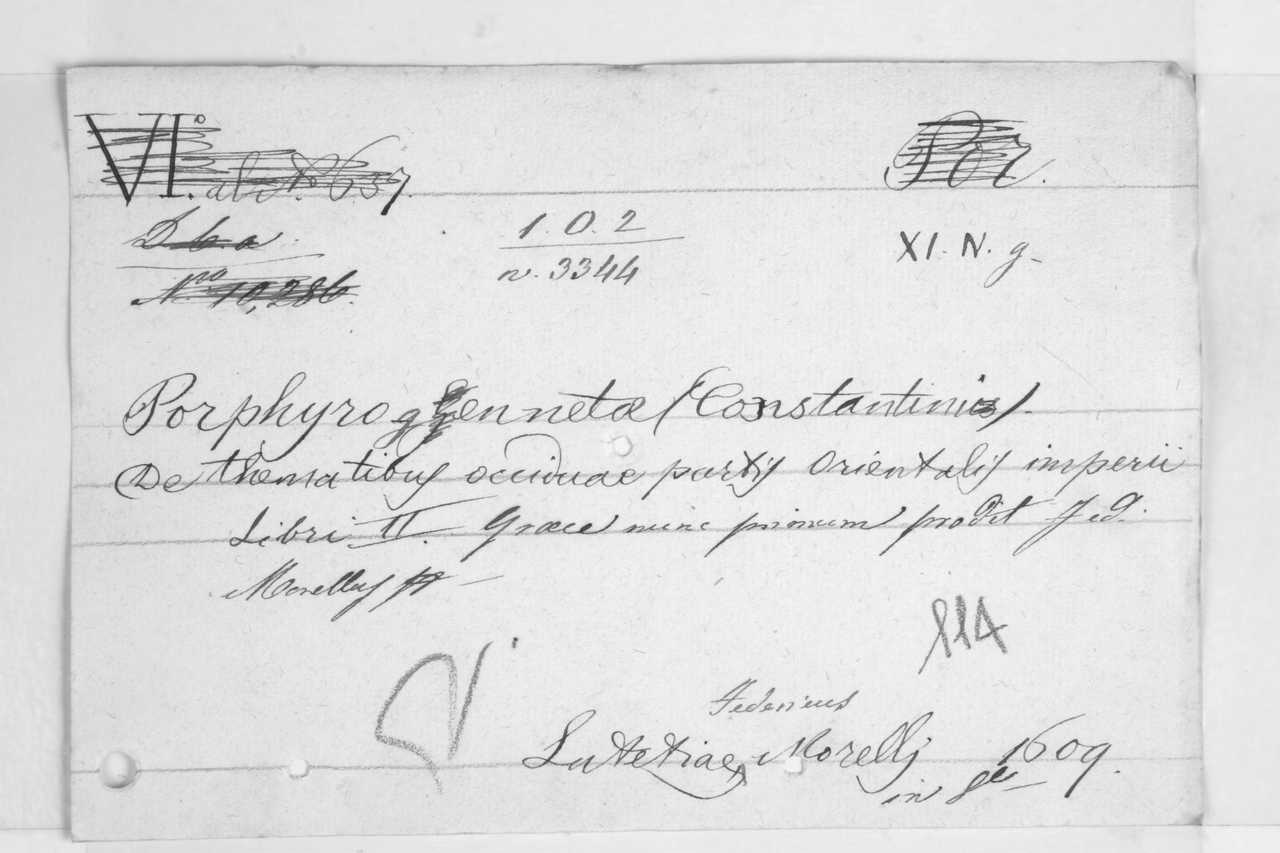 VI.
Por.
D b a
1. O. 2
XI. N. g.
Nro 10,286.
n. 3344
Porphyrogennetae (Constantini).
De thematibus occiduae partis Orientalis imperii
Libri II. Graece nunc primum prodit Fed.
Morellus
Federicus
Lutetiae, Morellj 1609.
in 8o